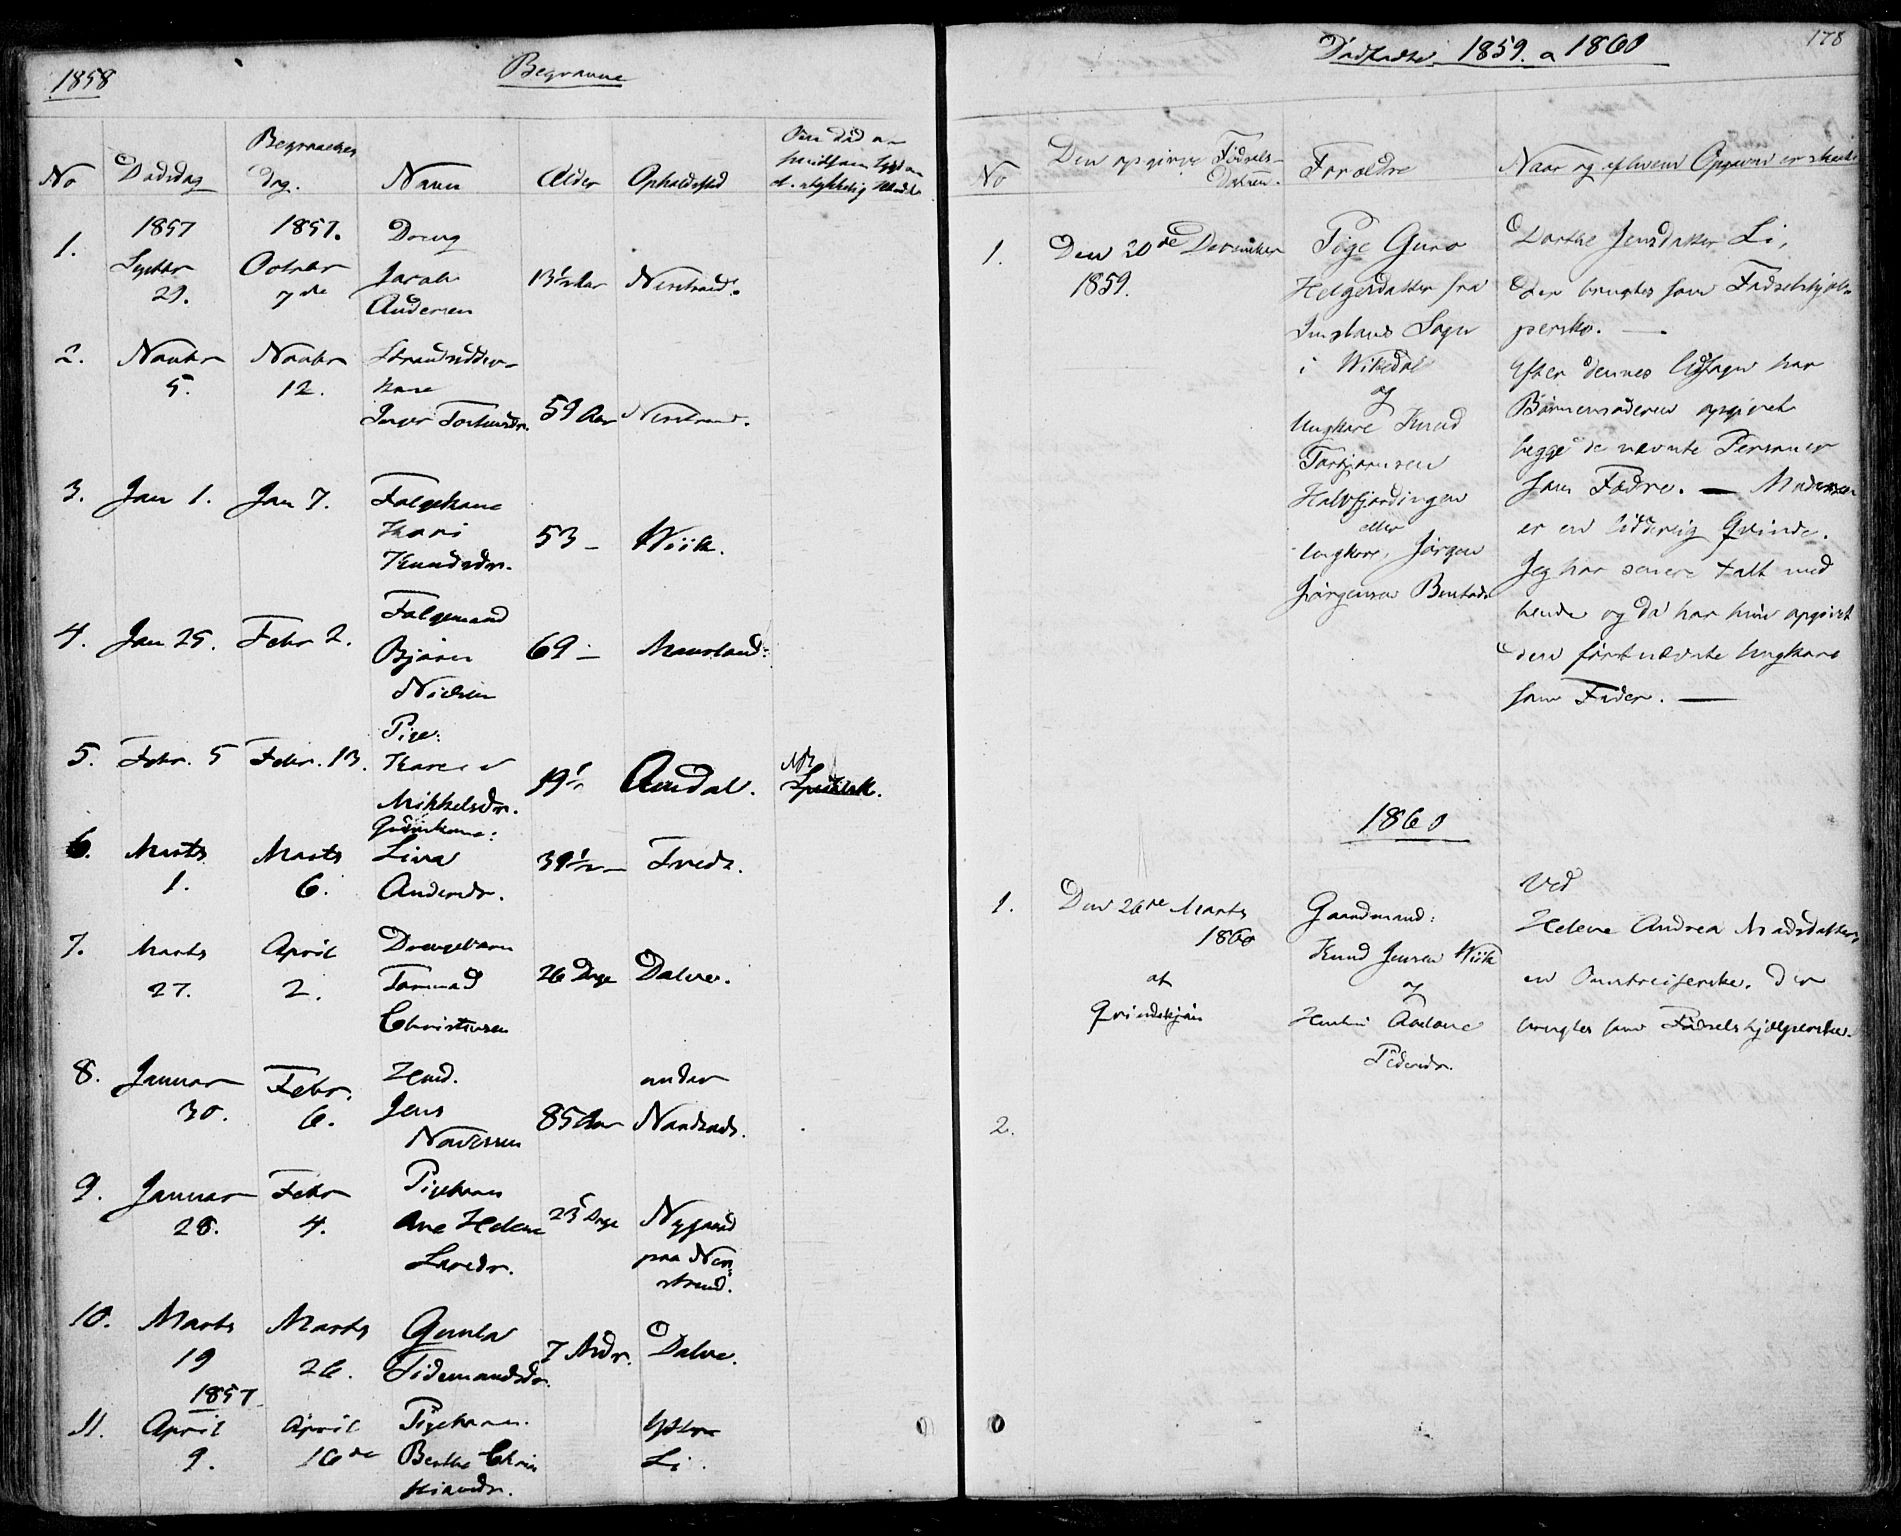 1858
Begravne
No
Dødsdag
Begravelses
dag.
Navn
Alder
Opholdssted
Om Død
1.
1857
Septbr
29.
1857.
October
7de
Dreng
Jacob
Andersen
13½ Aar
Nerstrand.
2.
Novbr
5.
Novbr
12.
Strandsidder-
kone
Inger Torkelsdr.
59 Aar
Nerstrand.
3.
Jan 1.
Jan 7.
Følgekone
Kari
Knudsdr.
53 –
Wiik.
4.
Jan 25.
Febr 2.
Følgemand
Bjørn
Nielsen
69 –
5.
Febr. 5
Febr. 13.
Pige:
Karen
Mikkelsdr.
19½
Aardal.
Spedalsk.
6.
Marts
1.
Marts
6.
Gaardkone:
Siva
Andersdr.
39½ –
Tvedt.
7.
Marts
27.
April
2.
Drengebarn
Tormod
Christensen
26 Dage
Dalve.
8.
Januar
30.
Febr.
6.
Jens
85 Aar
under
9.
Januar
28.
Febr
4.
Pigebarn
Ane Helene
Larsdr.
25 Dage
Nygaard
paa Ner-
strand.
10.
Marts
19
Marts
26.
Gunla
Tidemandsdr.
7 Aar.
Dalve.
1857
11.
April
9.
April
16de
Pigebarn.
Berthe Chris
tiansdr.
Ystre
Li.
Dødfødte 1859. o 1860
178
No
Den opgivne Fødsels-
Datum.
Forældre
Naar og af hvem Opgaven er skeet
1.
Den 20de December
1859.
Pige Guro
Helgesdatter fra
Imslands Sogn
i Wikedal
og
Ungkarl Knud
Torbjørnsen
Halvfjordingen
eller
Ungkarl, Jørgen
Jørgensen
Dorthe Jensdatter Li,
der brugtes som Fødselshjæl-
perske. —
Efter dennes Udsagn har
Barnemoderen opgivet
begge de nævnte Personer
som Fædre. — Moderen
er en liderlig Qvinde.
Jeg har senere talt med
hende og da har hun opgivet
den førstnævnte Ungkarl
som Fader. —
1860
1.
Den 26de Marts
1860
af
Qvindekjøn
Gaardmand:
Knud Jensen Wiik
og
Hustru
Pedersdr.
Ved
Helene Andrea Madsdatter,
en Omstreiferske, der
brugtes som Fødselshjælperske.
2.